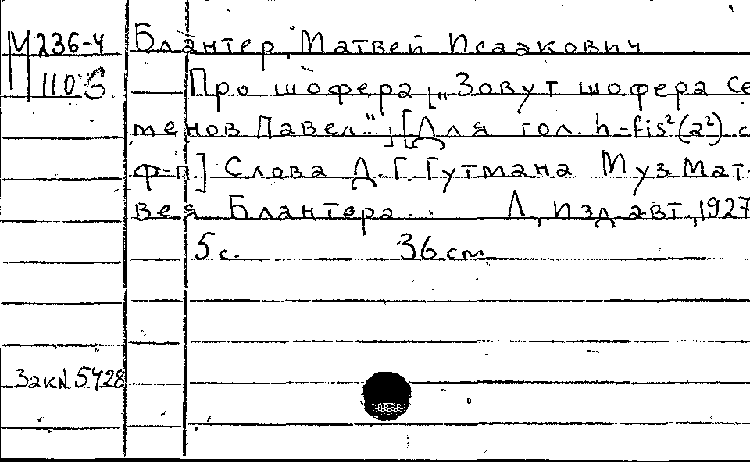 М 236-4 Блантер, Матвей Исаакович
110 Про шофера „Зовут шофера Се
менов Павел“ [Для гол. h-fis²(a²) с
ф-п.] Слова Д.Г.Гутмана Муз Мат-
вея Блантера. Л, изд авт, 1927
5 с. 36 cm
Зак№ 5428